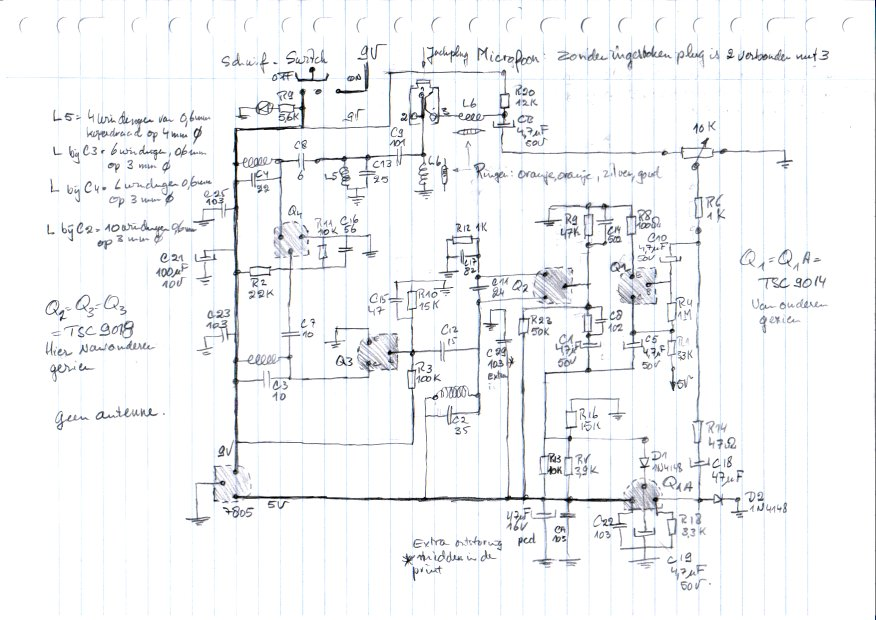 Schuif- Switch
9V
Jackplug Microfoon: Zonder ingestoken plug is 2 verbonden met 3
OFF
ON
R9
5,6K
9V
2
3
L6
R20
12K
4,7µF
50V
10K
L5 = 4 windingen van 0,6mm
koperdraad op 4mm Ø
L bij C3 = 6 windingen, 0,6mm
op 3 mm Ø
L bij C4 = 6 windingen 0,6mm
op 3 mm Ø
L bij C2 = 10 windingen 0,6mm
op 3mm Ø
C8
6
C9
101
C4
22
L5
C13
25
L6
Ringen: oranje, oranje, zilver, goud
C25
103
Q4
R11
10K
C16
56
R12 1K
C17
82
R9
47K
C14
R8
100Ω
C10
4,7µF
50V
R6
1K
C21
100µF
10V
R2
22K
C15
47
R10
15K
C11
24
Q2
Q1
Q1 = Q1A =
TSC 9014
Van onderen
gezien
Q2 = Q3 = Q3
= TSC 9018
Hier van onderen
gezien
C23
103
C7
10
Q3
C12
15
R23
50K
C1
4,7µF
50V
C8
102
C5
4,7µF
50V
R4
1M
R1
33K
5V
C29
103 *
Extra
C3
10
R3
100K
C2
35
Geen antenne.
R16
15K
R14
47Ω
C18
47µF
9V
7805
5V
R13
10K
3,9K
D1
1N4148
Q1A
D2
1N4148
47µF
16V
103
C22
103
R18
3,3K
C19
4,7µF
50V.
Extra ontstoring
* midden in de
print